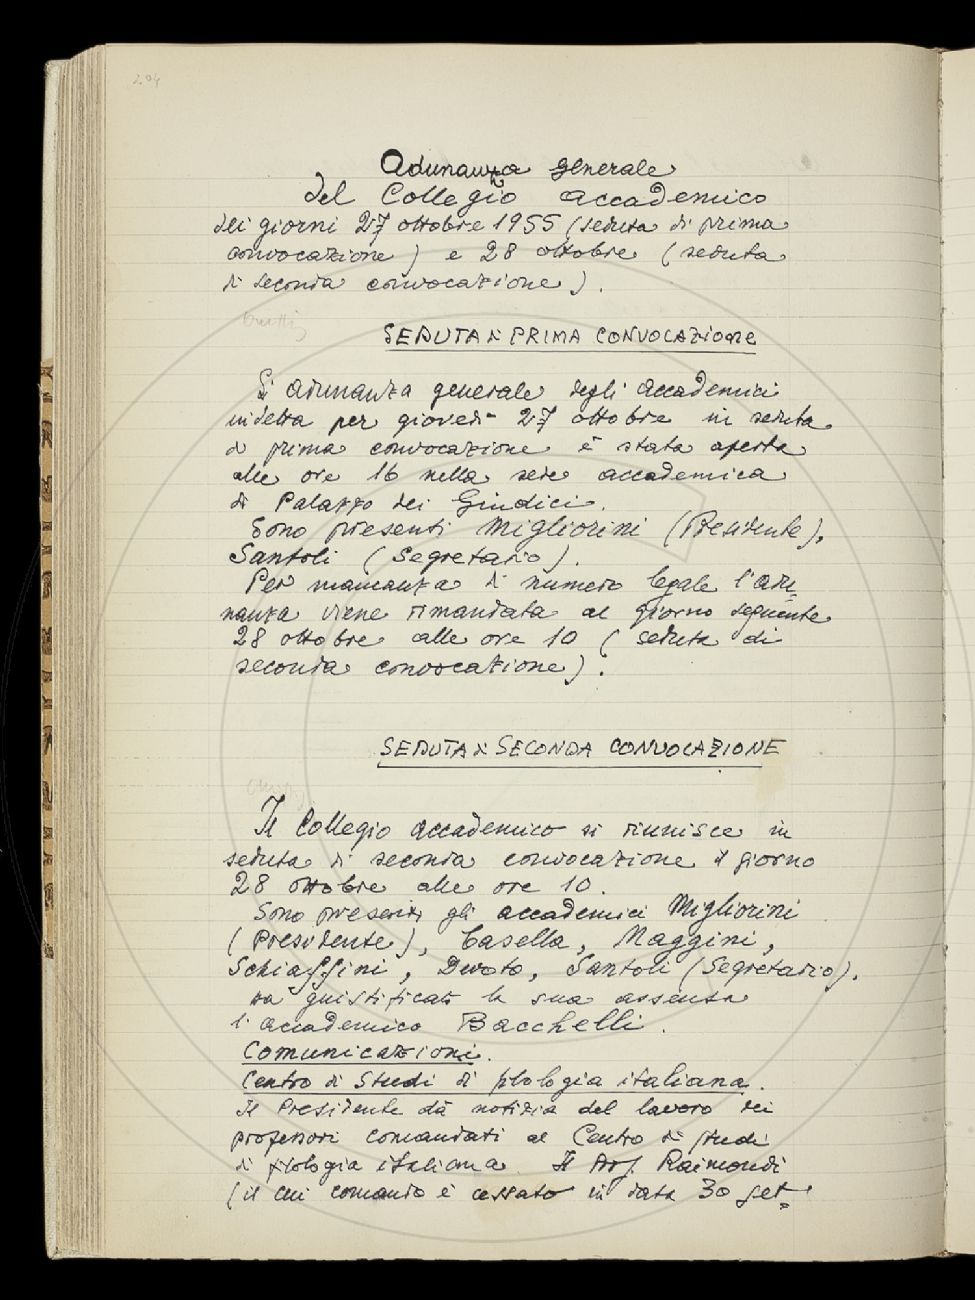 204
Adunanza generale
del Collegio accademico
dei giorni 27 ottobre 1955 (seduta di prima
convocazione) e 28 ottobre (seduta
di seconda convocazione).
SEDUTA DI PRIMA CONVOCAZIONE
L'adunanza generale degli accademici
indetta per giovedì 27 ottobre in seduta
di prima convocazione è stata aperta
alle ore 16 nella sede accademica
di Palazzo dei Giudici.
Sono presenti Migliorini (Presidente),
Santoli (Segretario).
Per mancanza di numero legale l'adu=
nanza viene rimandata al giorno seguente
28 ottobre alle ore 10 (seduta di
seconda convocazione).
SEDUTA DI SECONDA CONVOCAZIONE
Il Collegio accademico si riunisce in
seduta di seconda convocazione il giorno
28 ottobre alle ore 10.
Sono presenti gli accademici Migliorini
(Presidente), Casella, Maggini,
Schiaffini, Devoto, Santoli (Segretario).
Ha giustificato la sua assenza
l'accademico Bacchelli.
Comunicazioni.
Centro di Studi di filologia italiana.
Il Presidente dà notizia del lavoro dei
professori comandati al Centro di studi
di filologia italiana. Il prof. Raimondi
(il cui comando è cessato in data 30 set=